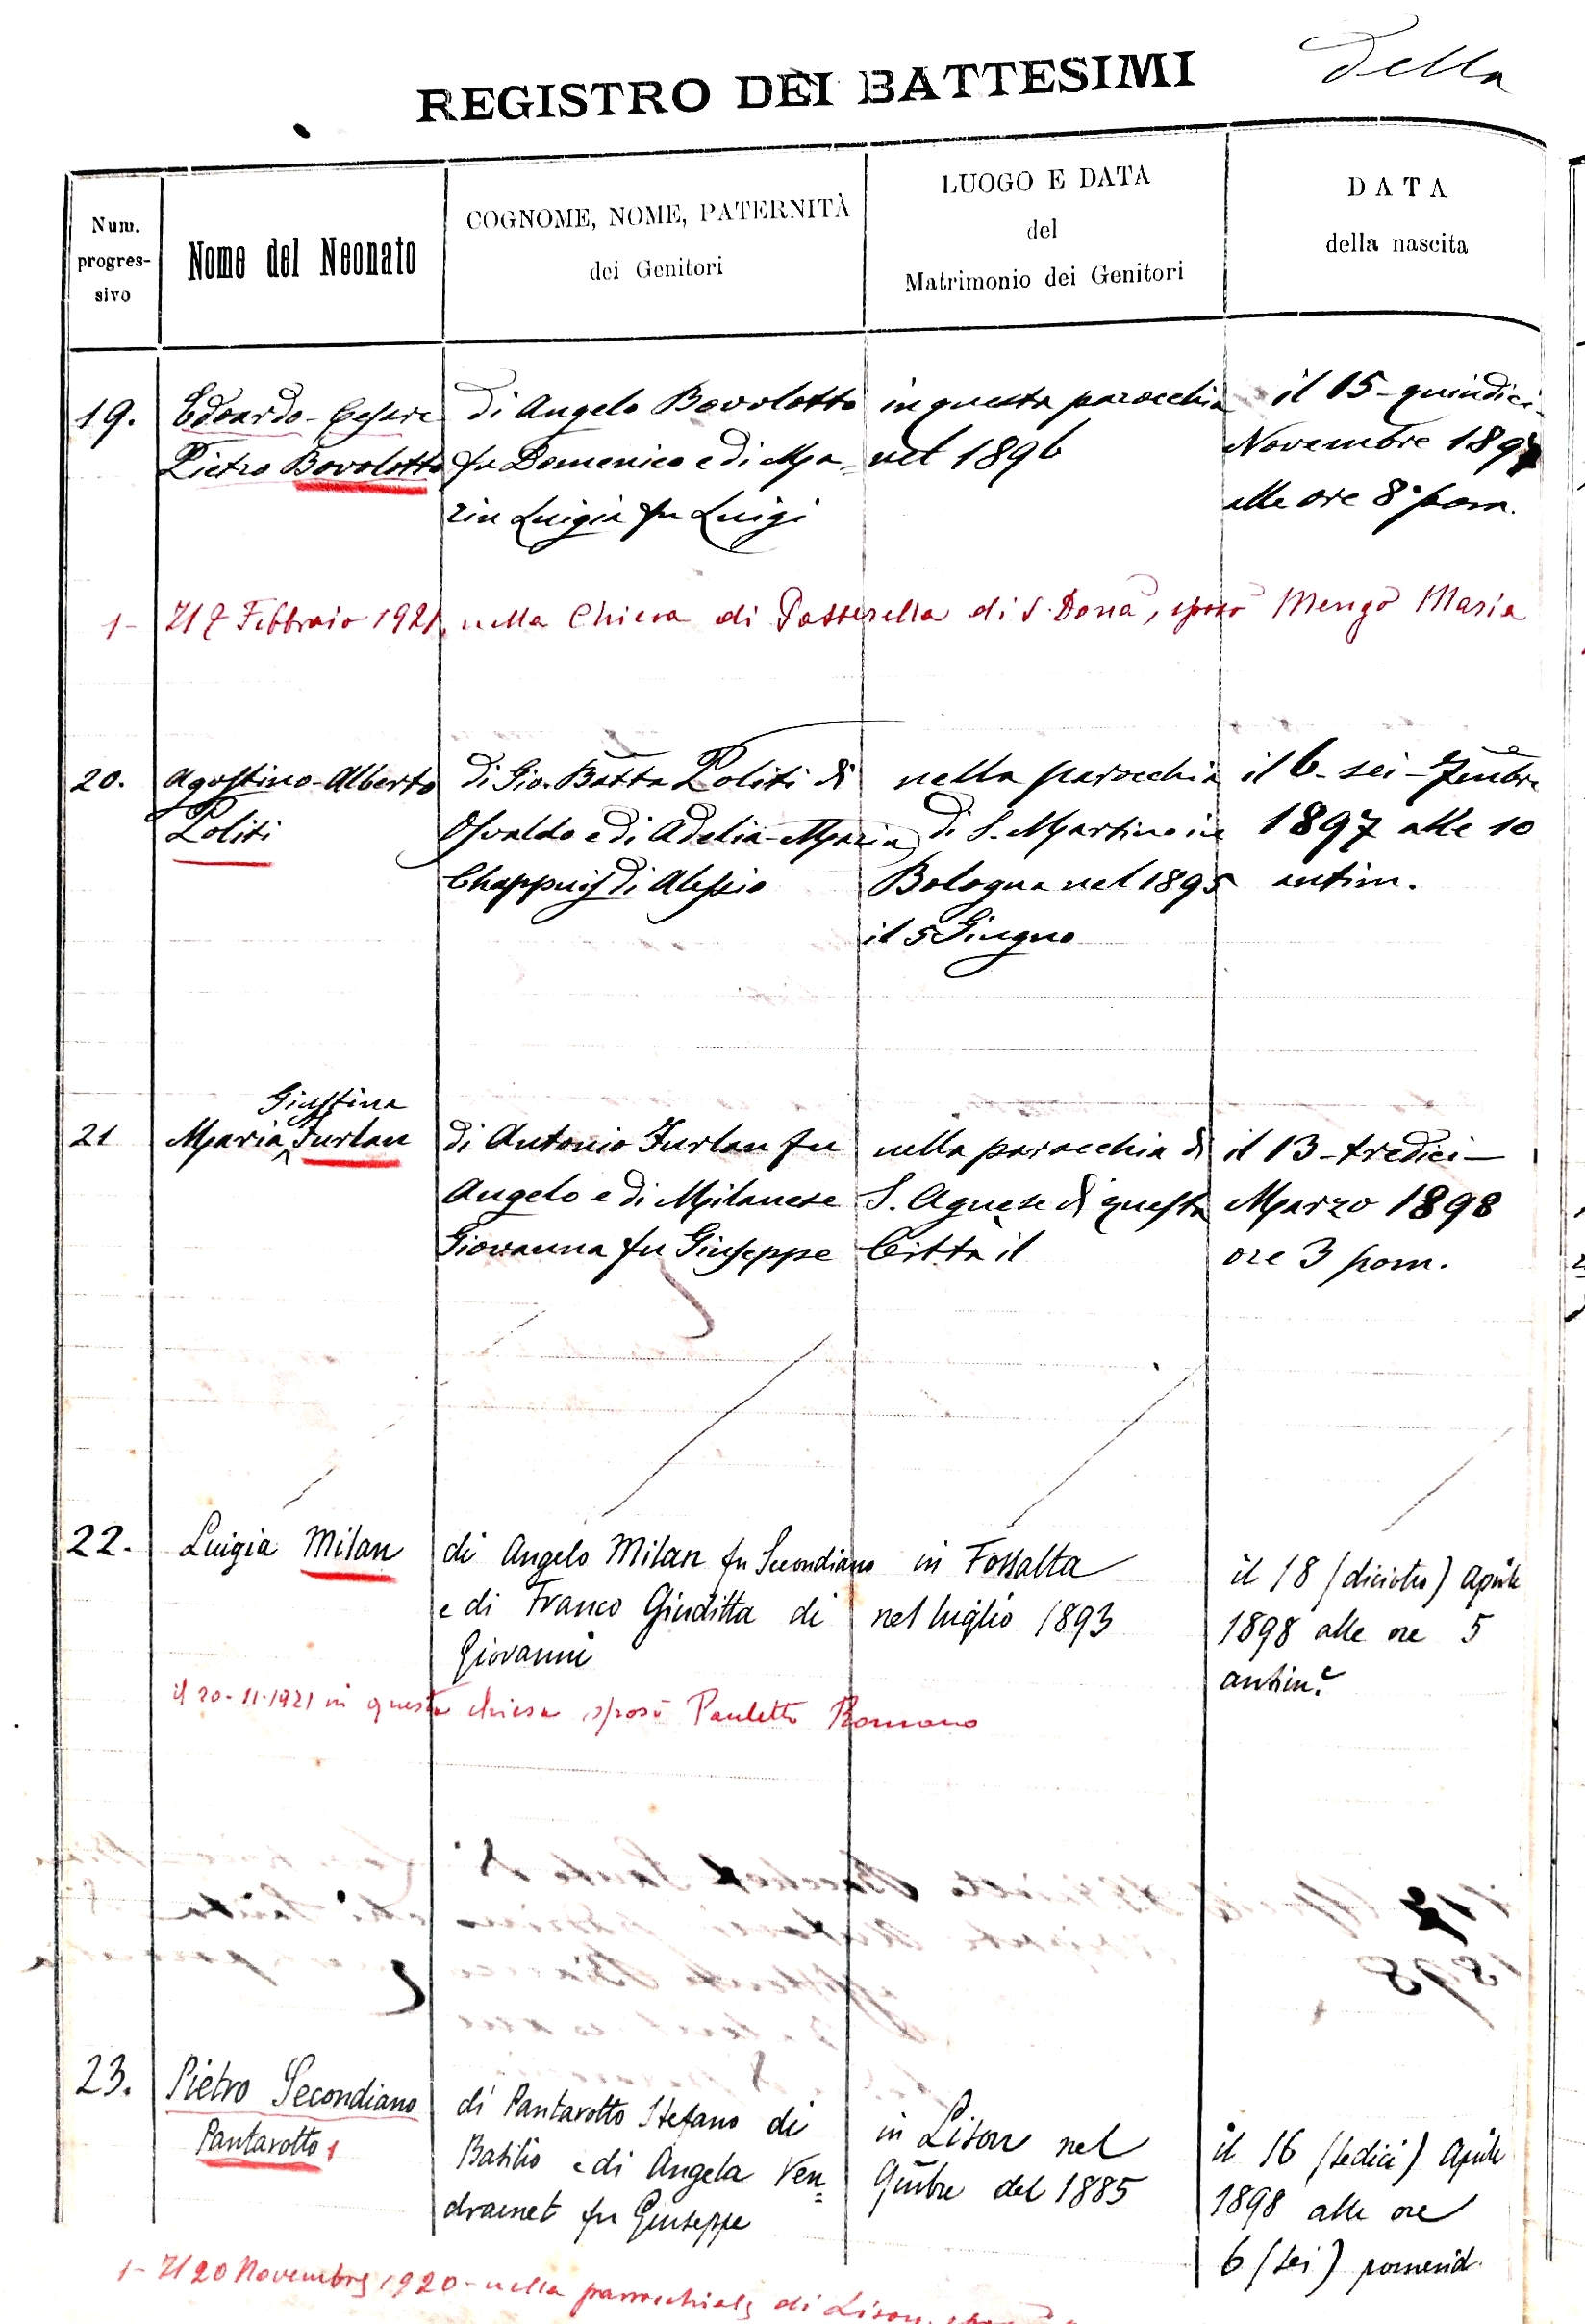 REGISTRO DEI BATTESIMI
della
Num.
progres-
sivo
Nome del Neonato
COGNOME, NOME, PATERNITÀ
dei Genitori
LUOGO E DATA
del
Matrimonio dei Genitori
DATA
della nascita
19.
Edoardo-Cesare
Pietro Bovolotto
di Angelo Bovolotto
fu Domenico e di Ma=
rin Luigia fu Luigi
in questa parocchia
nel 1896
il 15-quindici-
Novembre 1897
alle ore 8 pom.
1- Il 7 Febbraio 1921, nella Chiesa di Passerella di S. Donà, sposò Mengo Maria
20.
Agostino-Alberto
Politi
di Gio. Batta Politi di
Osvaldo e di Adelia-Maria
Chappuis di Alessio
nella parocchia
di S. Martino in
Bologna nel 1895
il 5 Giugno
il 6-sei-7mbre
1897 alle 10
antim.
21
Giustina
Maria Furlan
di Antonio Furlan fu
Angelo e di Milanese
Giovanna fu Giuseppe
nella parocchia di
S. Agnese di questa
Città il
il 13-tredici-
Marzo 1898
ore 3 pom.
22.
Luigia Milan
di Angelo Milan fu Secondiano
e di Franco Giuditta di
Giovanni
in Fossalta
nel luglio 1893
il 18 (diciotto) Aprile
1898 alle ore 5
antim.e
il 20-11-1921 in questa chiesa sposò Pauletto Romano
23.
Pietro Secondiano
Pantarotto 1
di Pantarotto Stefano di
Basilio e di Angela Ven=
dramet fu Giuseppe
in Lison nel
9mbre del 1885
il 16 (sedici) Aprile
1898 alle ore
6 (sei) pomerid.
1- Il 20 Novembre 1920-nella parrocchiale di Lison,